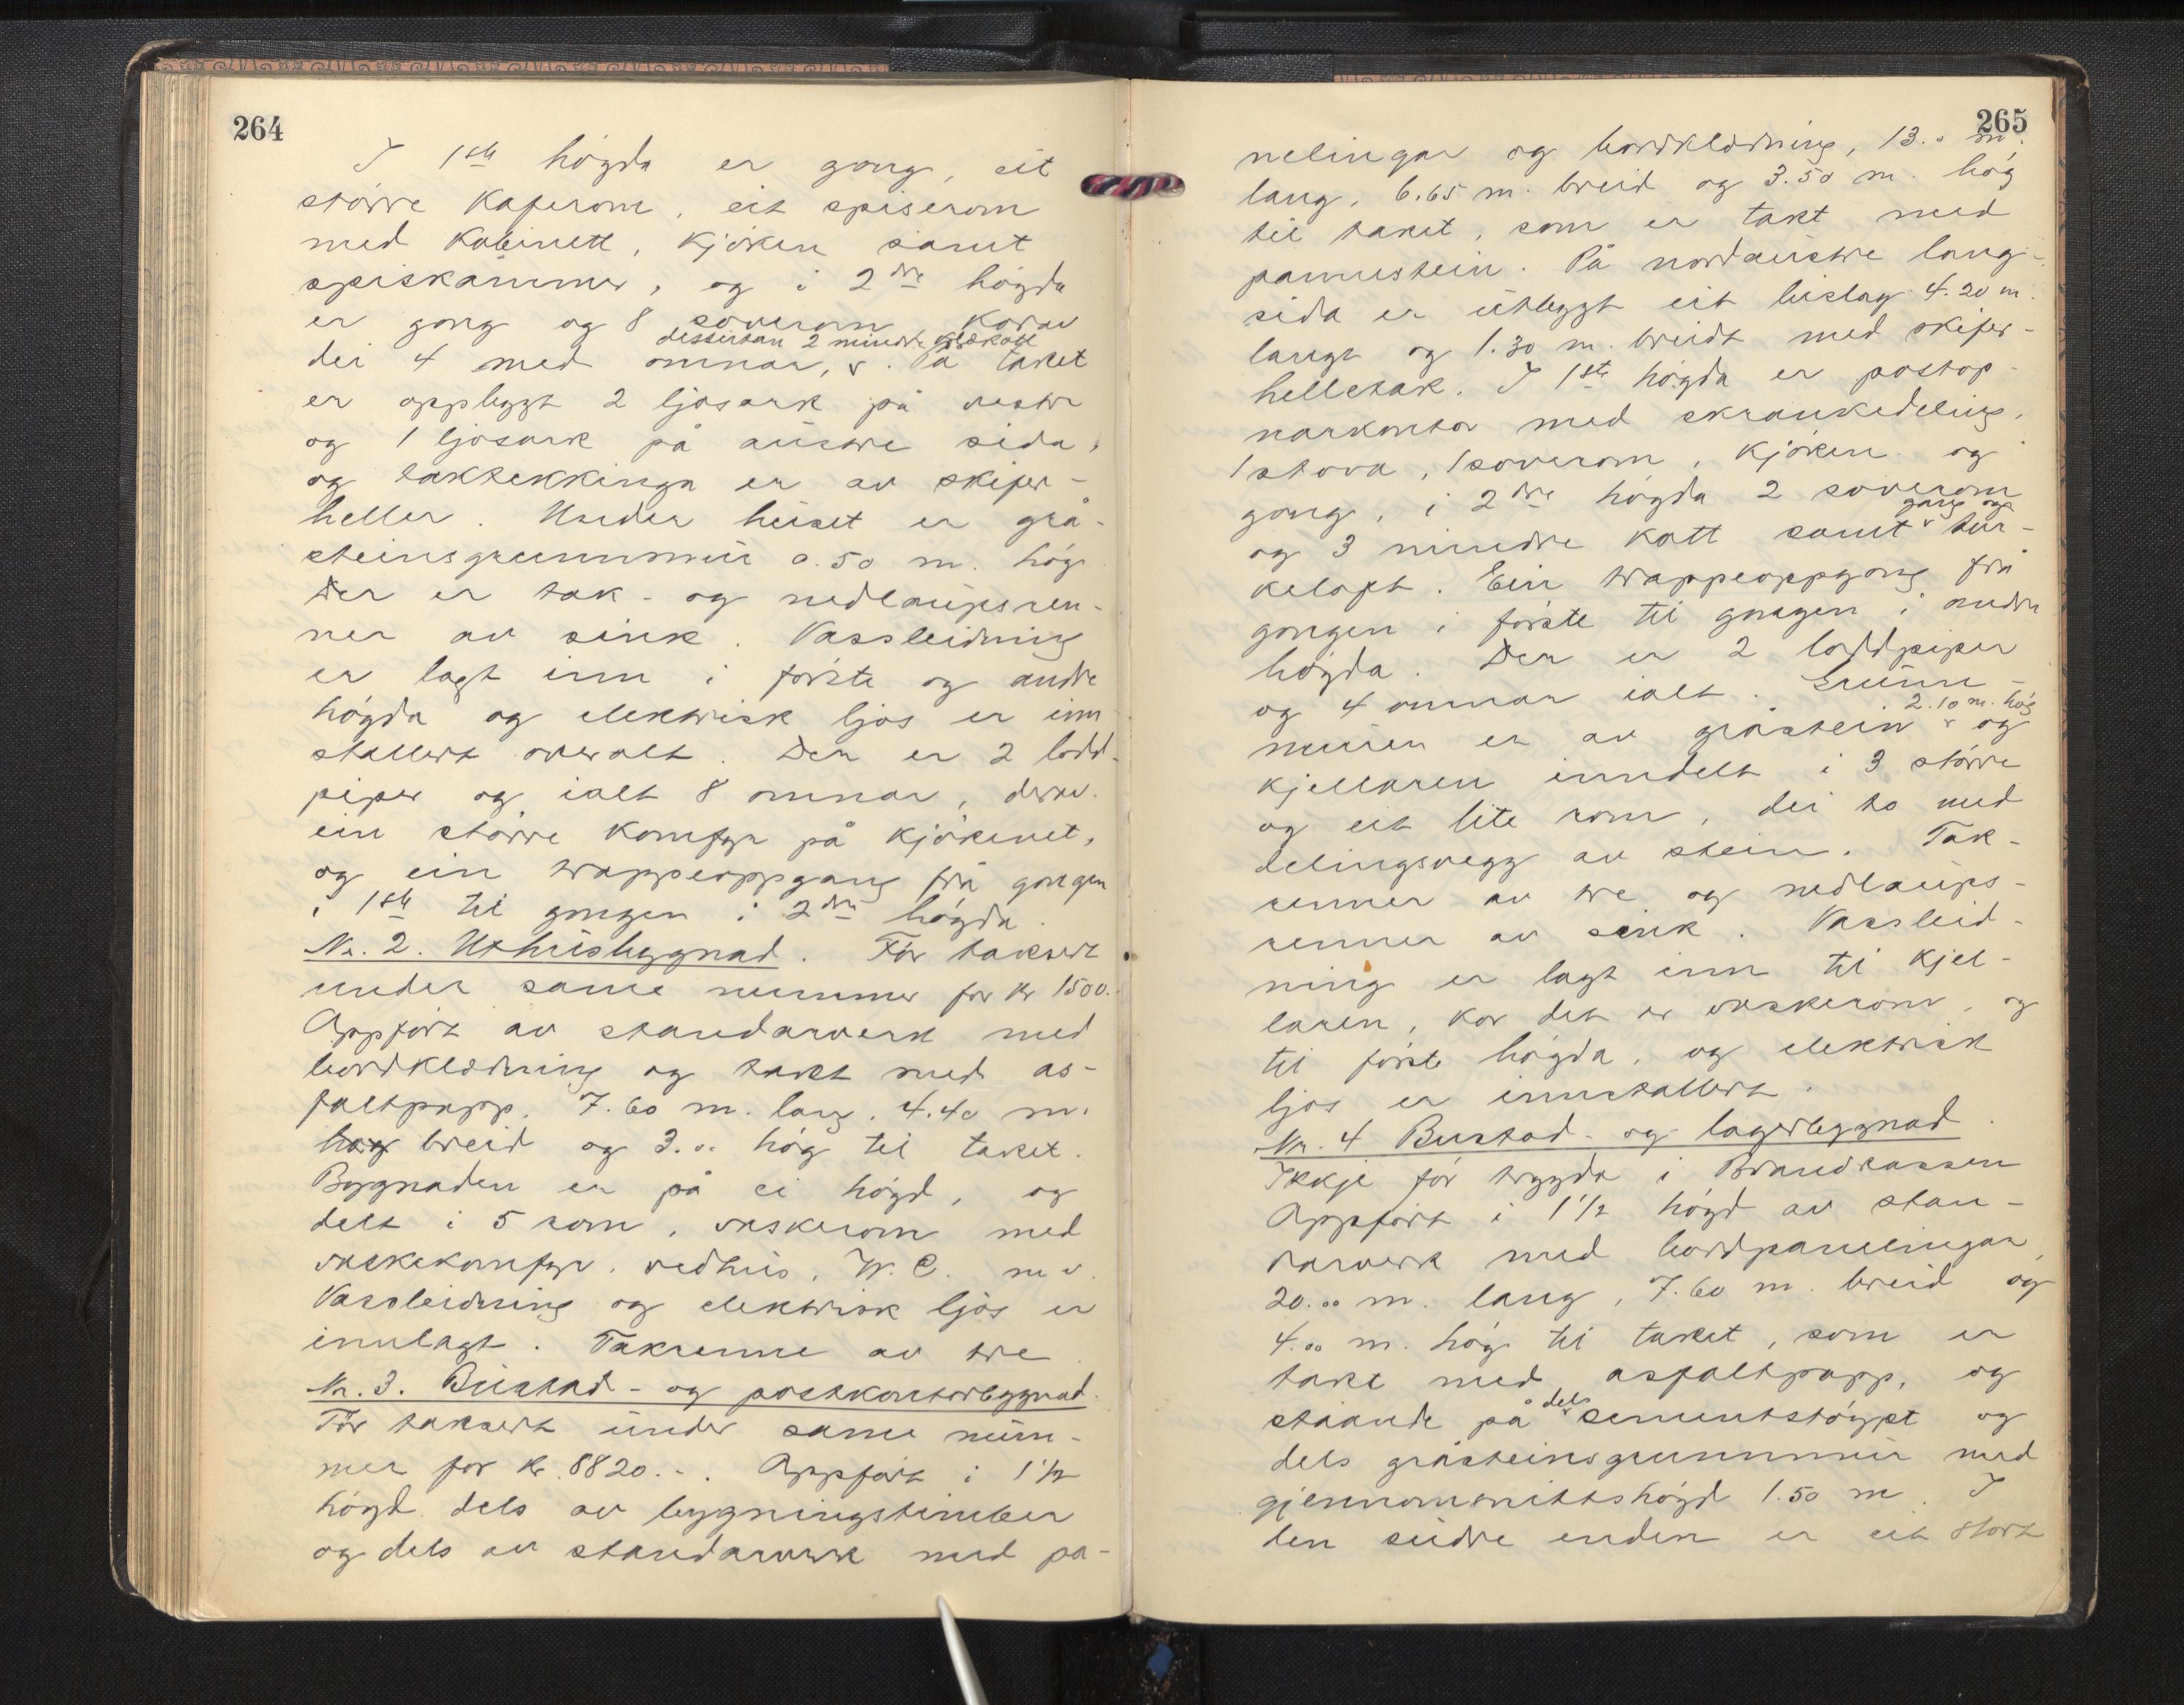 264
I 1ste högda er gong, eit
större kaferom, eit spiserom
med kabinett, kjöken samt
spiskammer, og i 2dre högda
er gong og 8 soverom korav
dessutan 2 mindre
dei 4 med omnar, v. På taket
er opplyggt 2 ljosark på vestre
og 1 ljosark på austre sida,
og taktekkinga er av skifer-
heller. Under huset er grå-
steinsgrunnmur 0.50 m. hög
Der er tak- og nedlaupsren-
ner av sink. Vassleidning
er lagt inn i förste og andre
högda og elektrisk ljos er inn
stallert overalt. Der er 2 lodd-
piper og ialt 8 omnar, derav
ein större komfyr på kjökenet,
og ein trappeoppgang frå gongen
i 1ste til gongen i 2dre högda.
Nr. 2. Uthusbygnad. För taksert
under same nummer for kr 1500.
Oppfört av standarverk med
bordklædning og takt med as-
faltpapp. 7.60 m. lang. 4.40 m.
hög breid og 3.00 hög til taket.
Bygnaden er på ei högd, og
delt i 5 rom, vaskerom med
vaskekomfyr, vedhus, W.C. m.v.
Vassleidning og elektrisk ljos er
innlagt. Takrenne av tre.
Nr. 3. Bustad- og postkontorbygnad.
För taksert under same num-
mer for kr. 8820.-. Oppfört i 1½
högd dels av bygningstimber
og dels av standarverk med pa-
265
nelingar og bordklædning, 13.0 m.
lang, 6.65 m. breid og 3.50 m. hög
til taket, som er takt med
pannestein. På nordaustre lang-
sida er utbyggt eit bislag 4.20 m.
langt og 1.30 m. breidt med skifer-
helletak. I 1ste högda er postop-
narkontor med skrankedeling,
1 stova, 1 soverom, kjöken og
gong, i 2dre högda 2 soverom
gang og
og 3 mindre kott samt v tur-
keloft. Ein trappeoppgong frå
gongen i förste til gongen i andre
högda. Der er 2 loddpiper
og 4 omnar ialt. Grunn-
2.10 m. hög
muren er av gråstein v og
kjellaren inndelt i 3 större
og eit lite rom, dei to med
delingsvegg av stein. Tak-
renner av tre og nedlaups-
renner av sink. Vassleid-
ning er lagt inn til kjel-
laren, kor det er vaskerom, og
til förste högda, og elektrisk
ljos er innstallert.
Nr. 4 Bustad- og lagerbygnad.
Ikkje för trygda i Brandkassen
Oppfört i 1½ högd av stan-
darverk med bordpanelingar,
20.00 m. lang, 7.60 m. breid og
4.00 m. hög til taket, som er
takt med asfaltpapp, og
dels
ståande på v sementstöypt og
dels gråsteinsgrunnmur med
gjennomsnittshögd 1.50 m. I
den sudre enden er eit stort